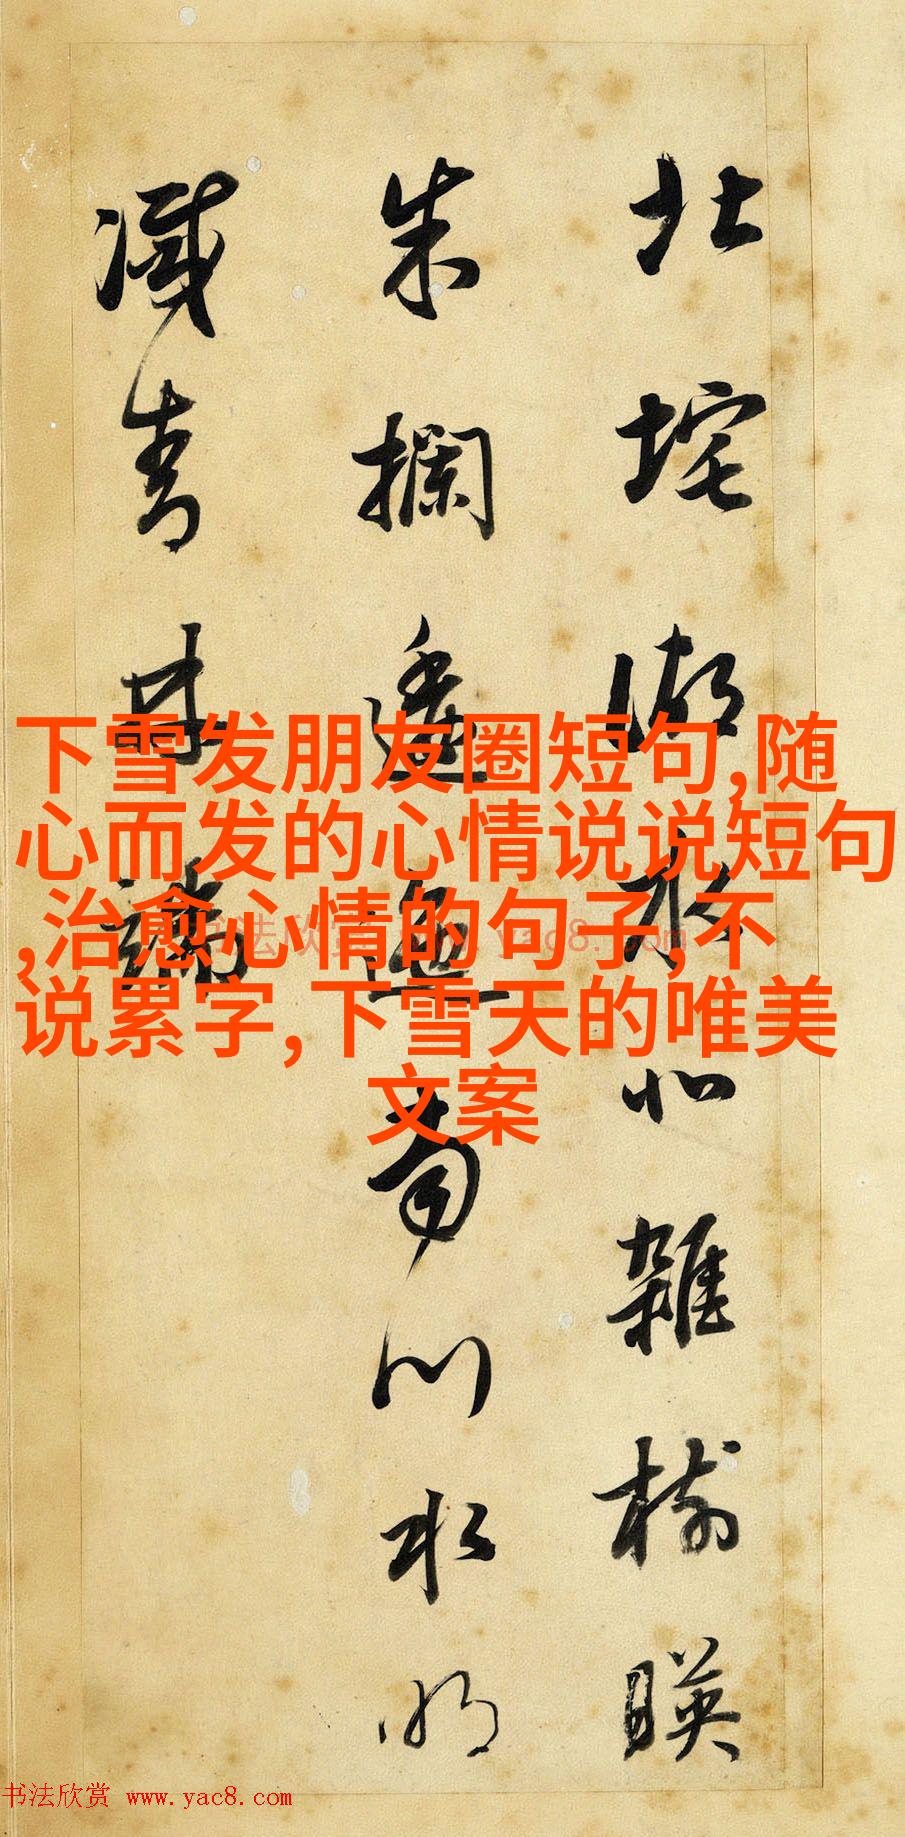 北垞湖水北雜樹暎
朱攔逶迤南川水明
滅青林端
下雪发朋友圈短句,随
心而发的心情说说短句
,治愈心情的句子,不
说累字,下雪天的唯美
文案
书法欣赏 www.yac8.com
书法欣赏 www.yac8.com